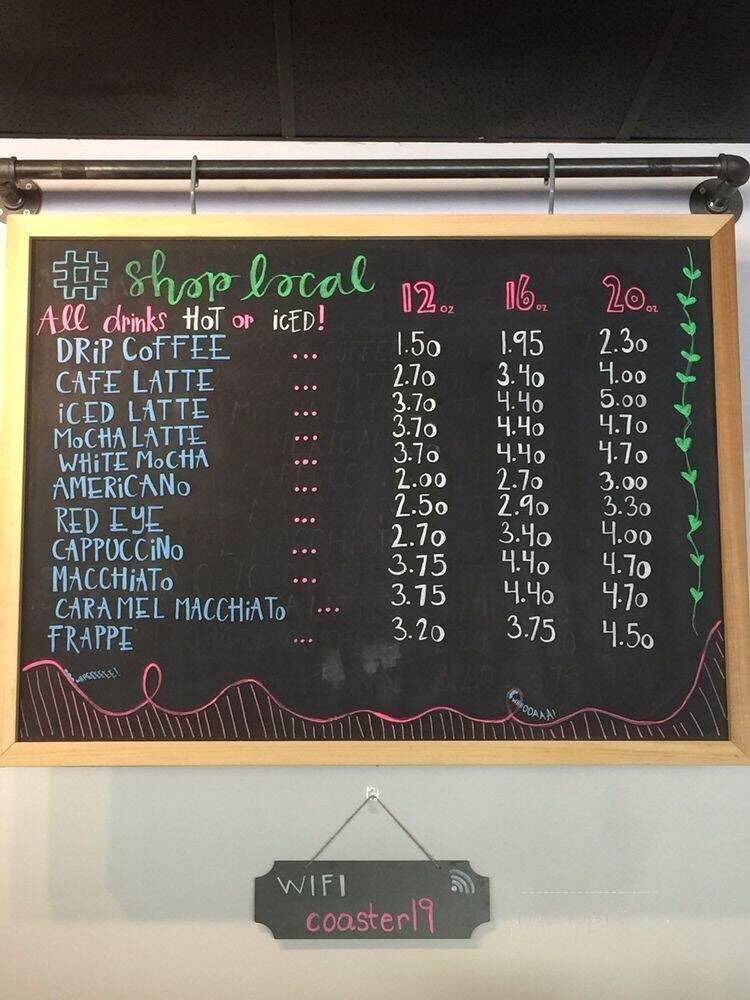 # shop local 12 oz 16 oz 20 oz
All drinks HOT or iCED!
DRiP CoFFEE ... 1.50 1.95 2.30
CAFE LATTE ... 2.70 3.40 4.00
iCED LATTE ... 3.70 4.40 5.00
MoCHA LATTE ... 3.70 4.40 4.70
WHiTE MoCHA ... 3.70 4.40 4.70
AMERiCANo ... 2.00 2.70 3.00
RED EYE ... 2.50 2.90 3.30
CAPPUCCiNo ... 2.70 3.40 4.00
MACCHiATo ... 3.75 4.40 4.70
CARAMEL MACCHiATo ... 3.75 4.40 4.70
FRAPPE ... 3.20 3.75 4.50
WIFI
coaster19